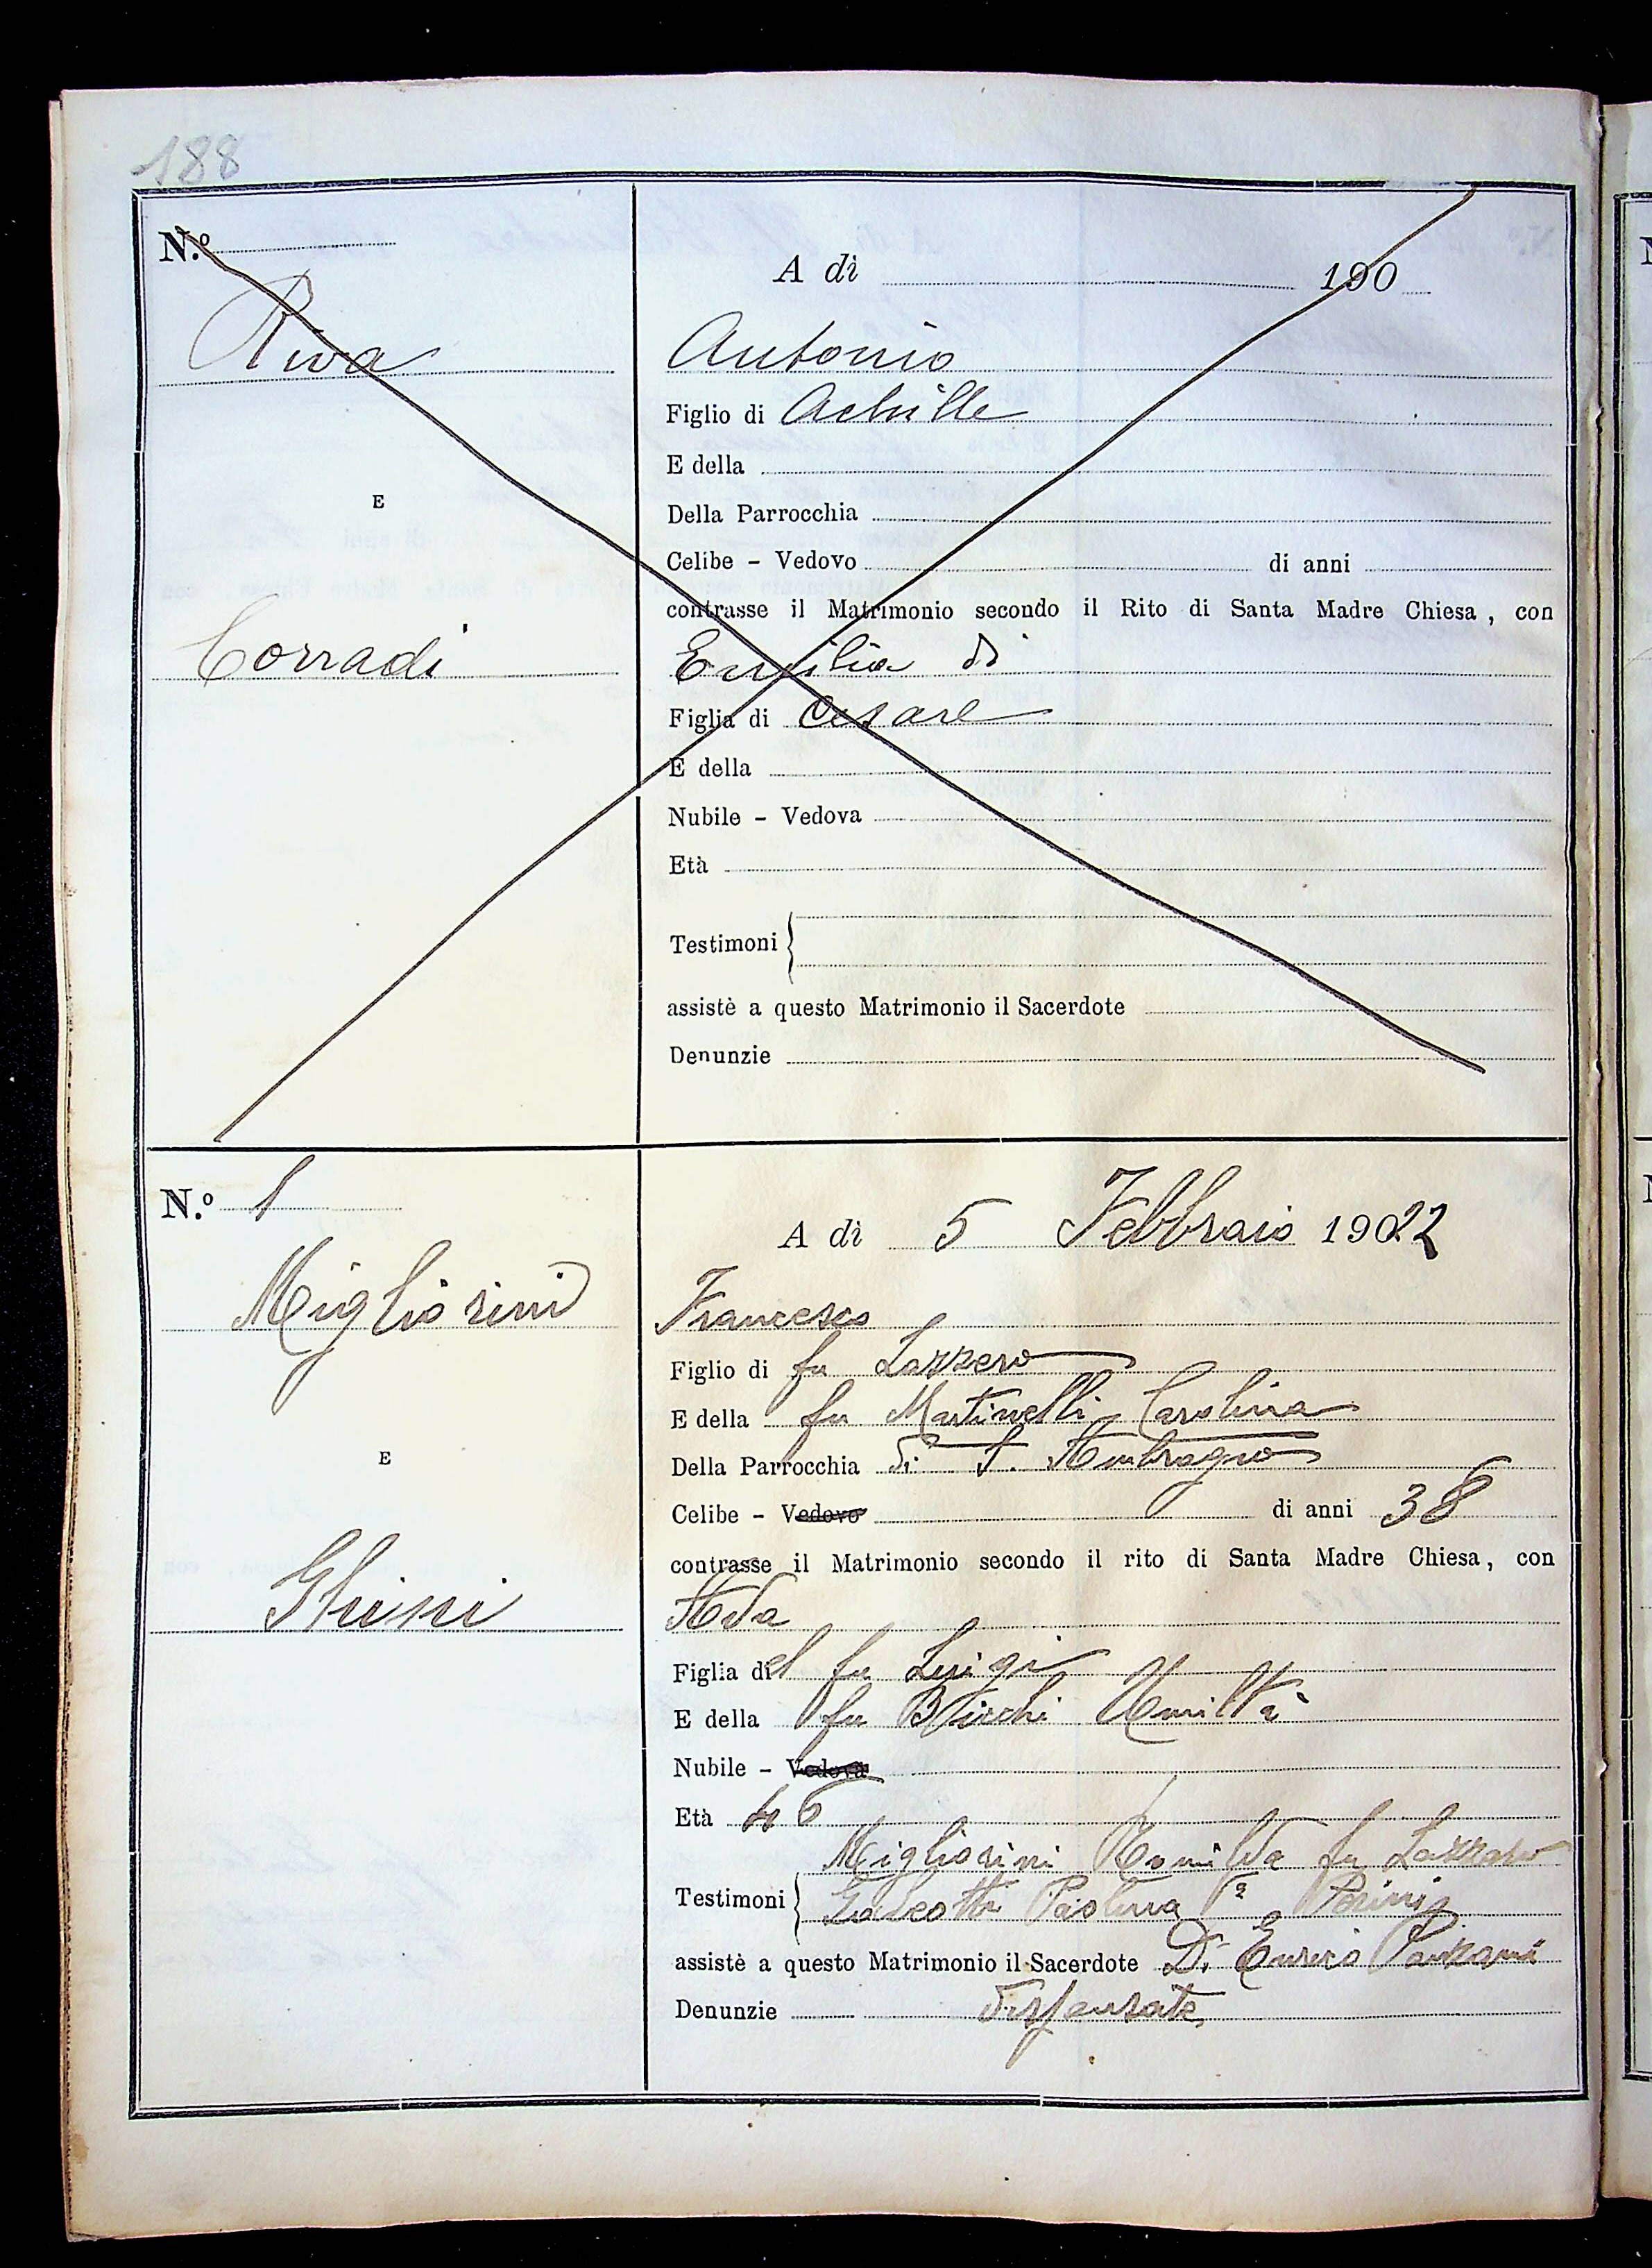 188
N.º
A dì 190
Riva
Antonio
Figlio di Achille
E della
E
Della Parrocchia
Celibe - Vedovo di anni
contrasse il Matrimonio secondo il Rito di Santa Madre Chiesa, con
Corradi
Emilia di
Figlia di Cesare
E della
Nubile - Vedova
Età
Testimoni
assistè a questo Matrimonio il Sacerdote
Denunzie
N.º 1
A dì 5 Febbraio 1922
Migliorini
Francesco
Figlio di fu Lazzero
E della fu Martinelli Carolina
E
Della Parrocchia di S. Ambrogio
Celibe - Vedovo di anni 38
contrasse il Matrimonio secondo il rito di Santa Madre Chiesa, con
Ghini
Ada
Figlia del fu Luigi
E della fu Umiltà
Nubile - Vedova
Età
Migliorini Romilda fu Lazzaro
Testimoni Galeotti Paolina
assistè a questo Matrimonio il Sacerdote D. Enrico
Denunzie dispensate